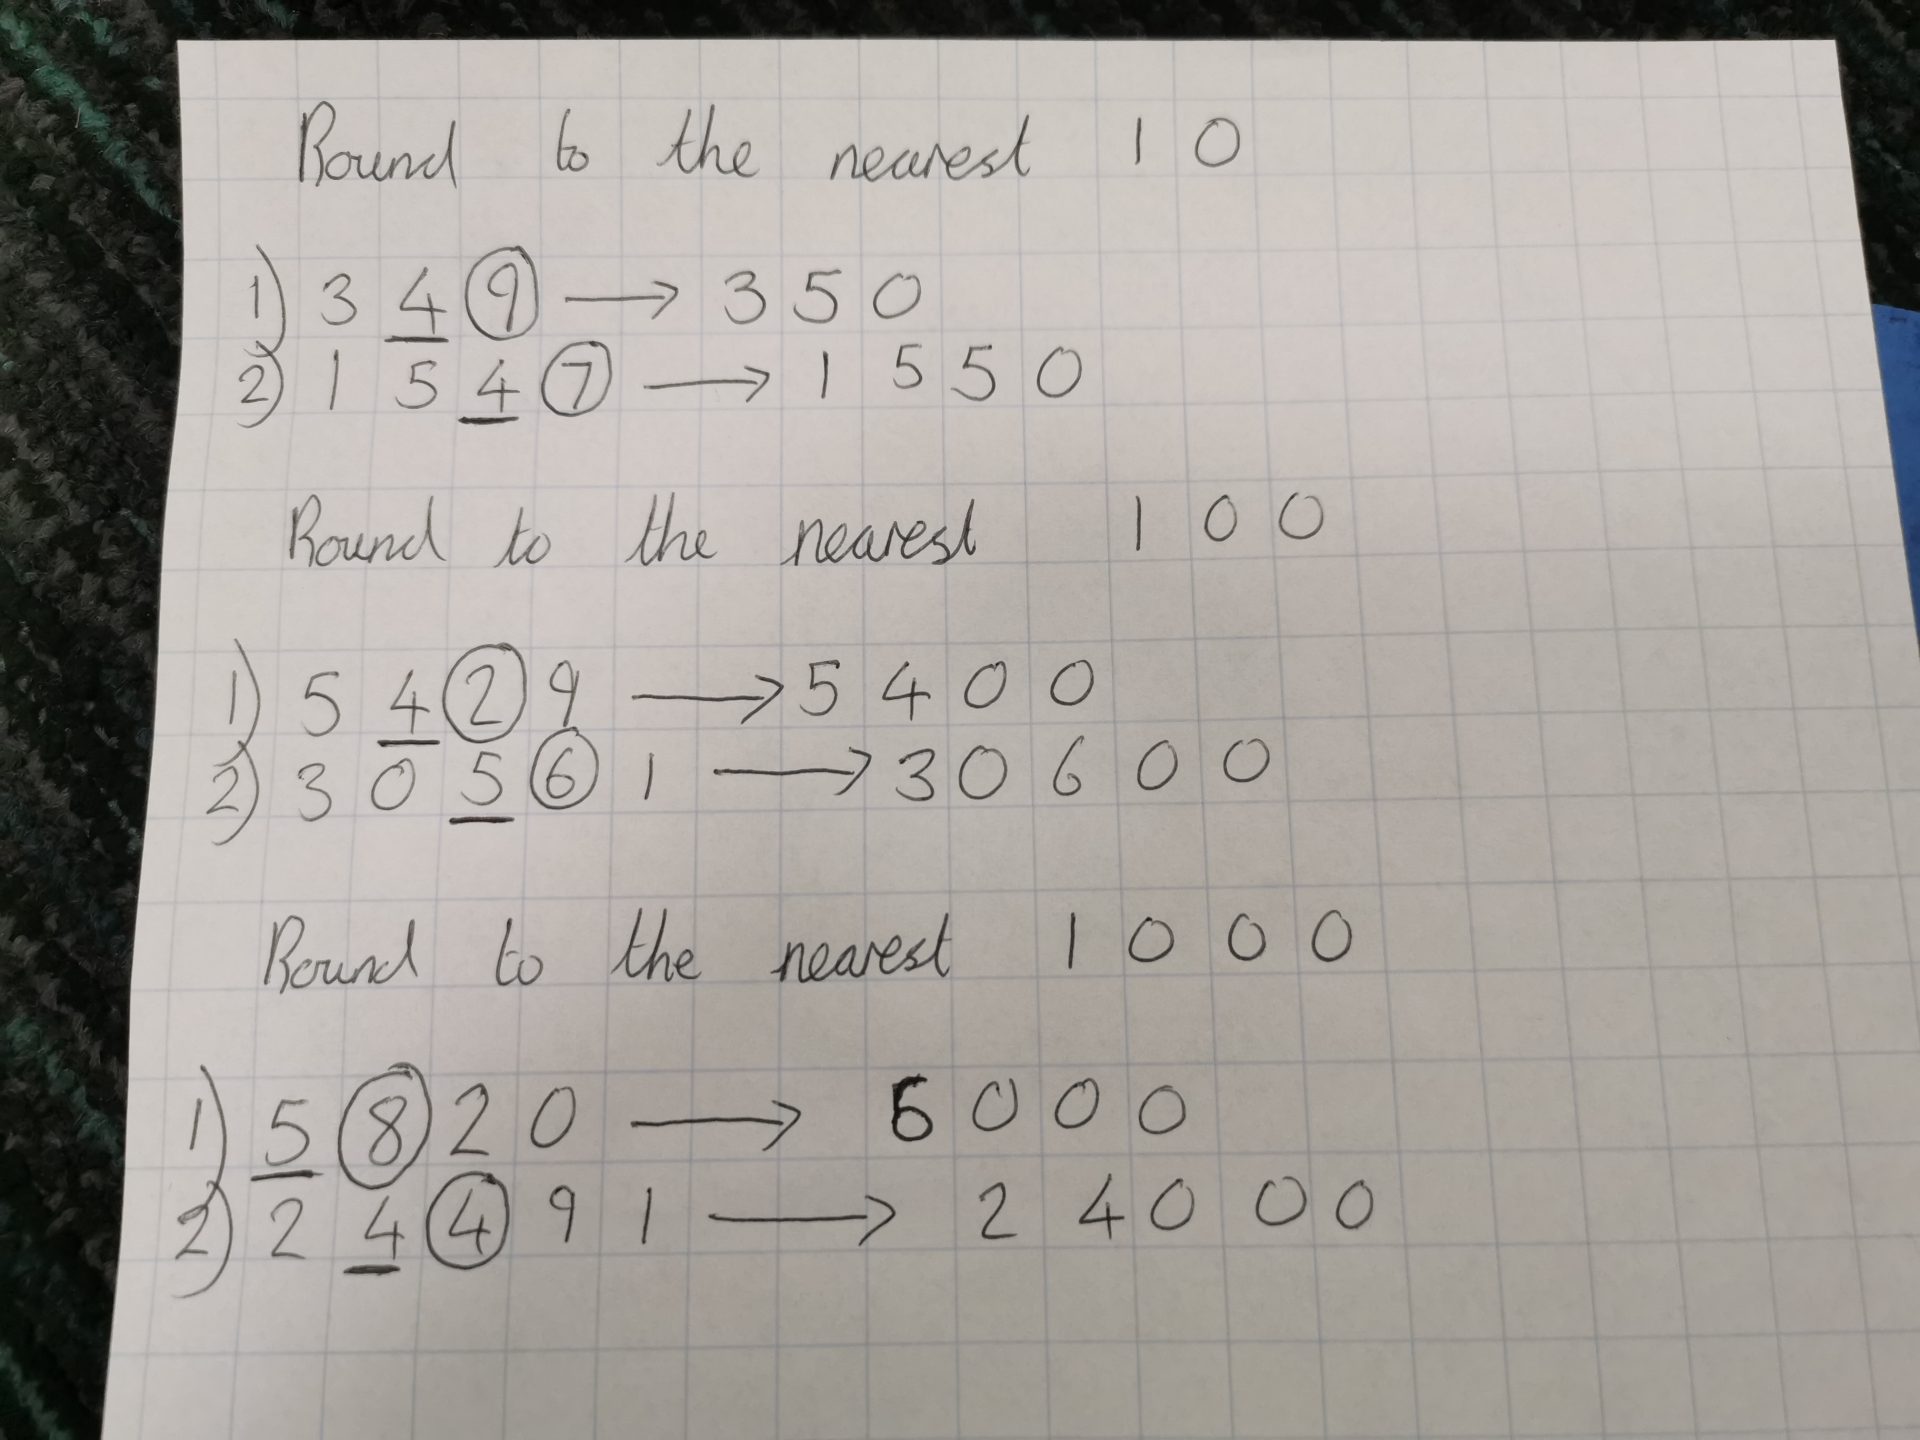 Round to the nearest 10
1) 349 → 350
2) 1547 → 1550
Round to the nearest 100
1) 5429 → 5400
2) 30561 → 30600
Round to the nearest 1000
1) 5820 → 6000
2) 24491 → 24000